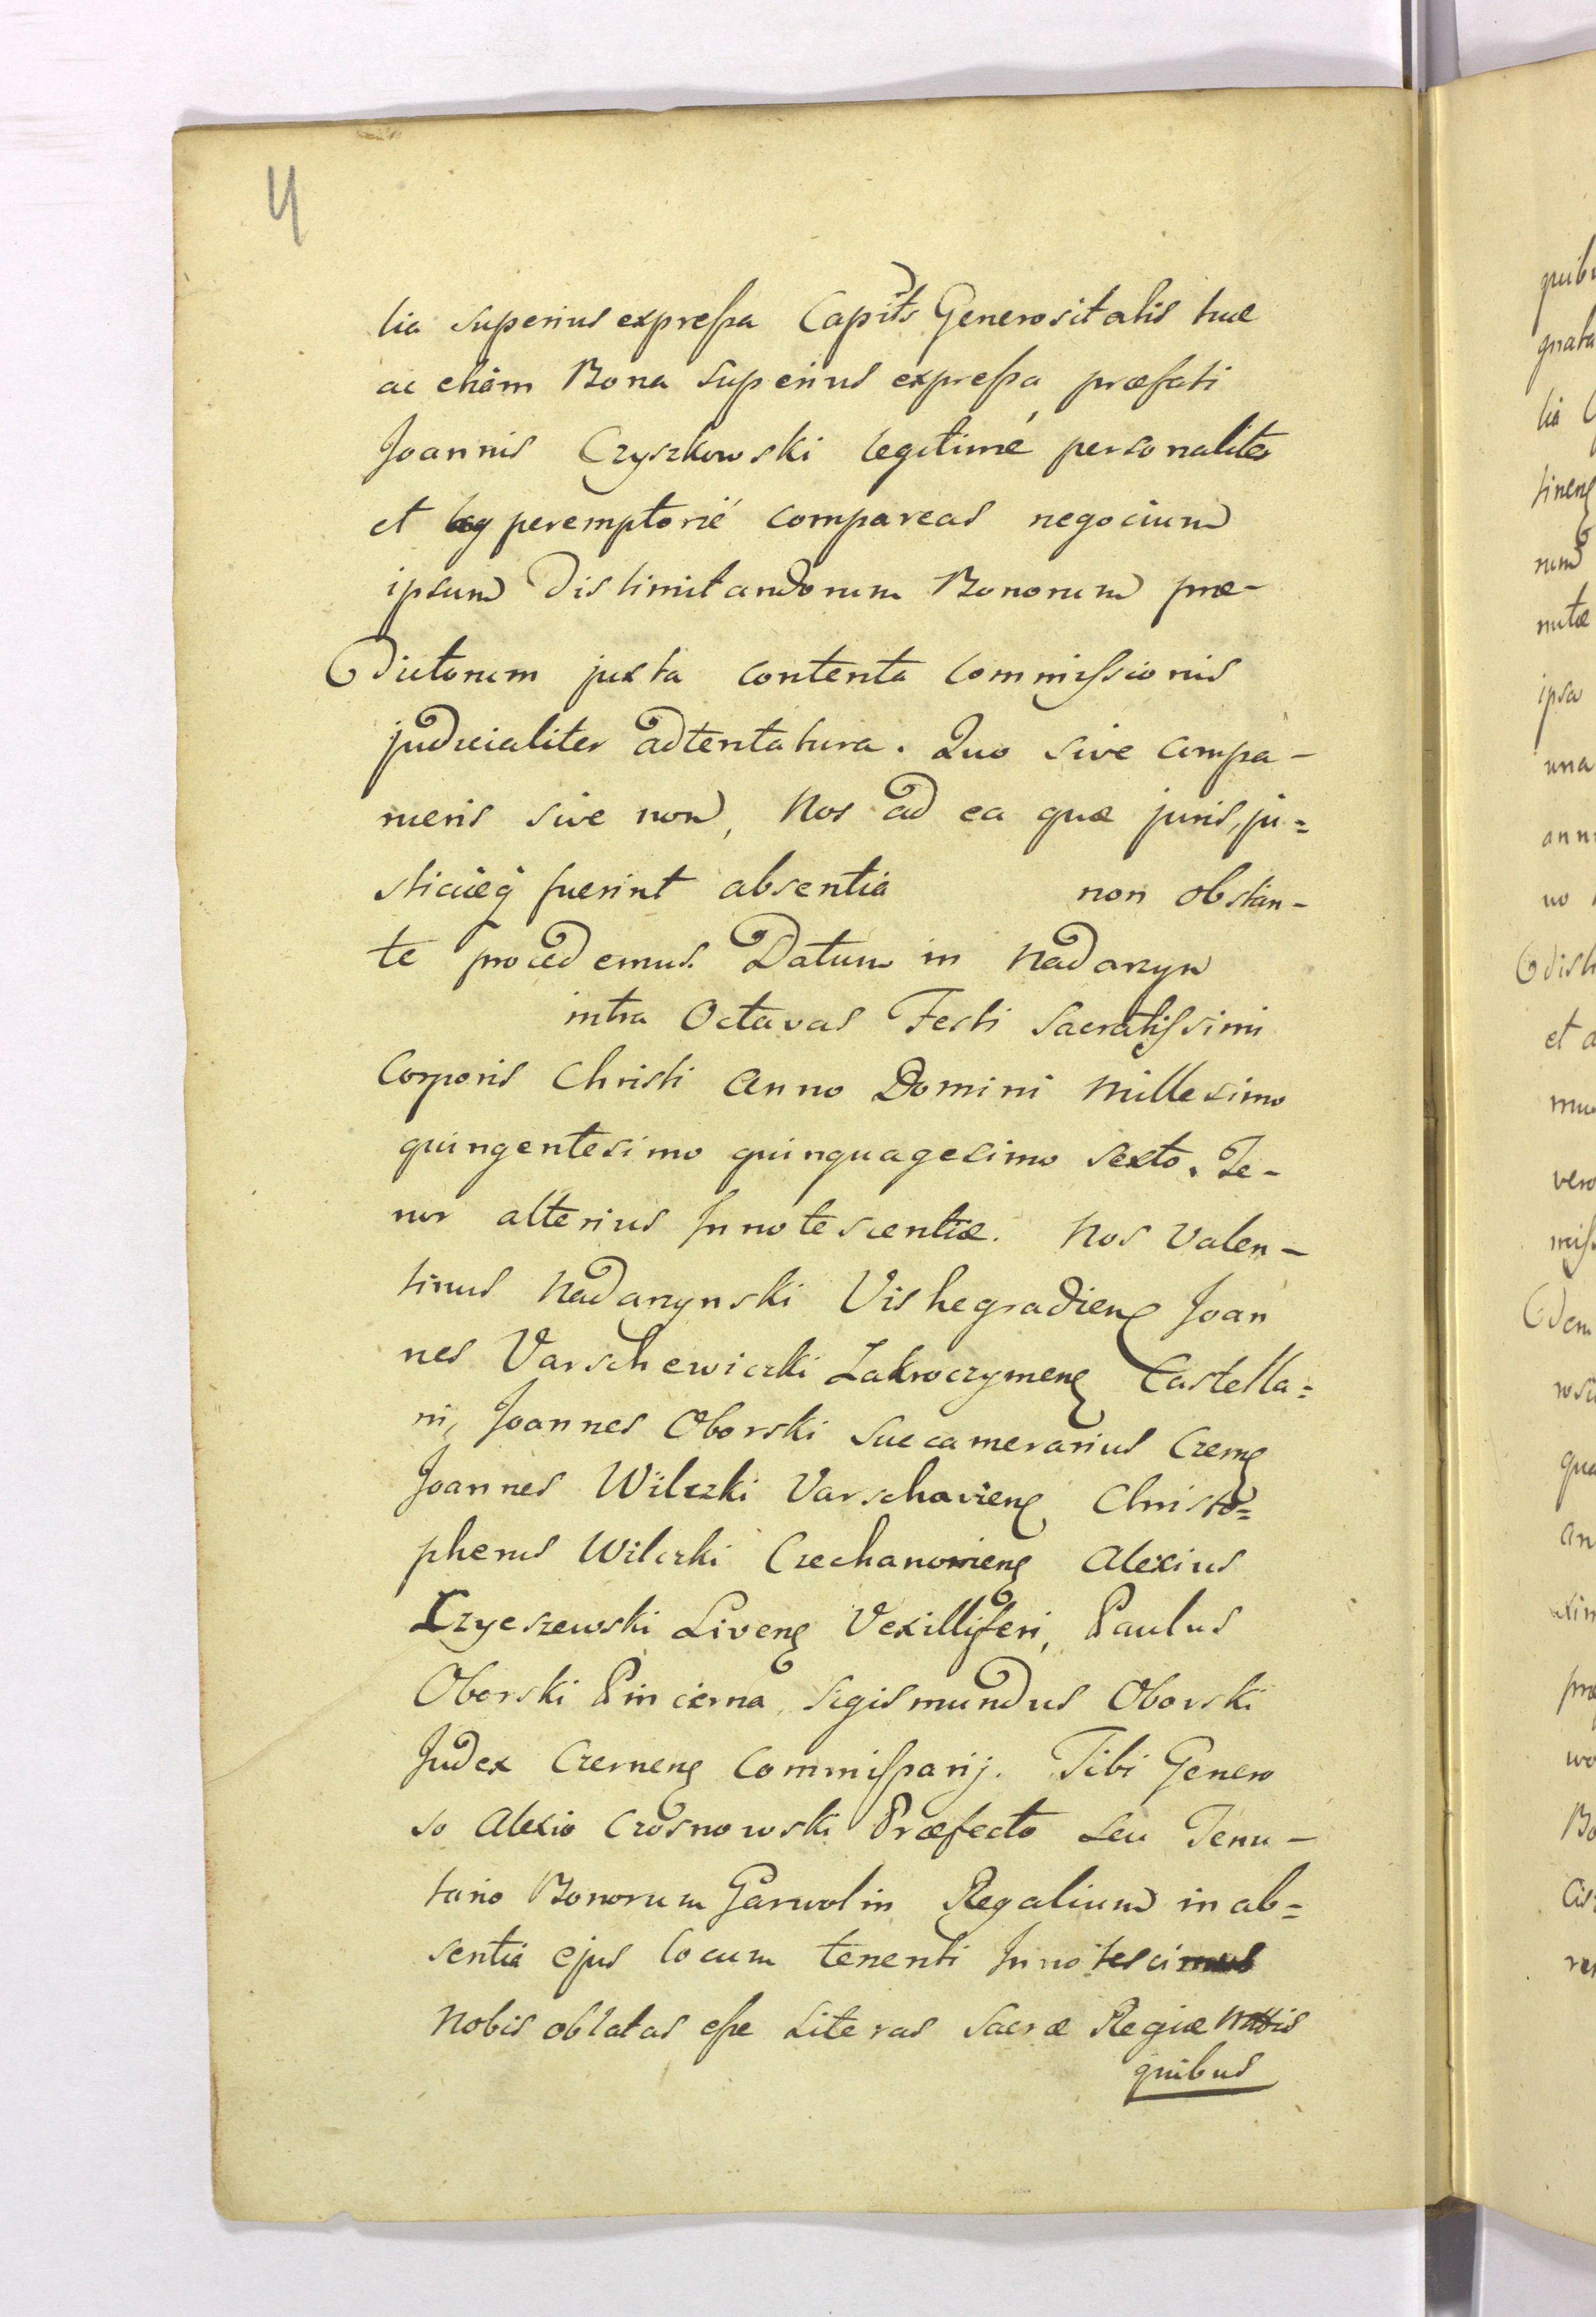 4
lia superius expressa Capits Generositatis tuæ
ac etiam Bona superius expressa præfati
Joannis Czyszkowski legitimé personaliter
et peremptorié compareas negocium
ipsum dislimitandorum Bonorum præ-
dictorum juxta contenta commissionis
judicialiter adtentatura. Quo sive compa-
rueris sive non, Nos ad ea quæ juris, ju=
stitiæq fuerint absentia non obstan-
te procedemus. Datum in Nadarzyn
intra Octavas Festi Sacratissimi
Corporis Christi Anno Domini Millesimo
quingentesimo quinquagesimo sexto. Te-
nor alterius Innotescentiæ. Nos Valen-
tinus Nadarzynski Vishegradien Joan
nes Varschewiczki Zakroczymen Castella=
ni, Joannes Oborski Succamerarius Czern
Joannes Wilczki Varschavien Christo=
pherus Wilczki Czechanovien Alexius
Czyeszewski Liven Vexilliferi, Paulus
Oborski Pincerna, Sigismundus Oborski
Judex Czernen Commissarij. Tibi Genero
so Alexio Crosnowski Præfecto seu Tenu-
tario Bonorum Garwolin Regalium in ab=
sentia ejus locum tenenti Innotescimus
Nobis oblatas esse Literas Sacræ Regiæ Mttis
quibus